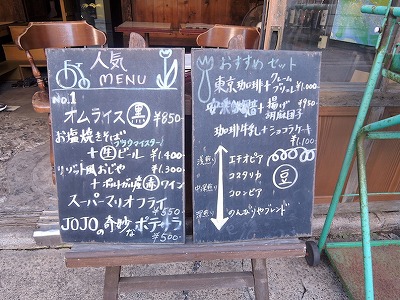 人気
MENU
No.1
オムライス 黒 ¥850
お塩焼きそば
ブックマイスター!
+生ビール ¥1.400
リゾット風おじや ¥1.300
+ポルトガル産赤ワイン
スーパーマリオフライ
¥550
JOJOの奇妙なポテサラ
¥500
おすすめセット
東京珈琲+クレームブリュレ ¥1.000
+揚げ胡麻団子 ¥950
珈琲牛乳+ショコラケーキ
¥1.100
浅煎り エチオピア
コスタリカ
中深煎り コロンビア
深煎り のんびりやブレンド
豆